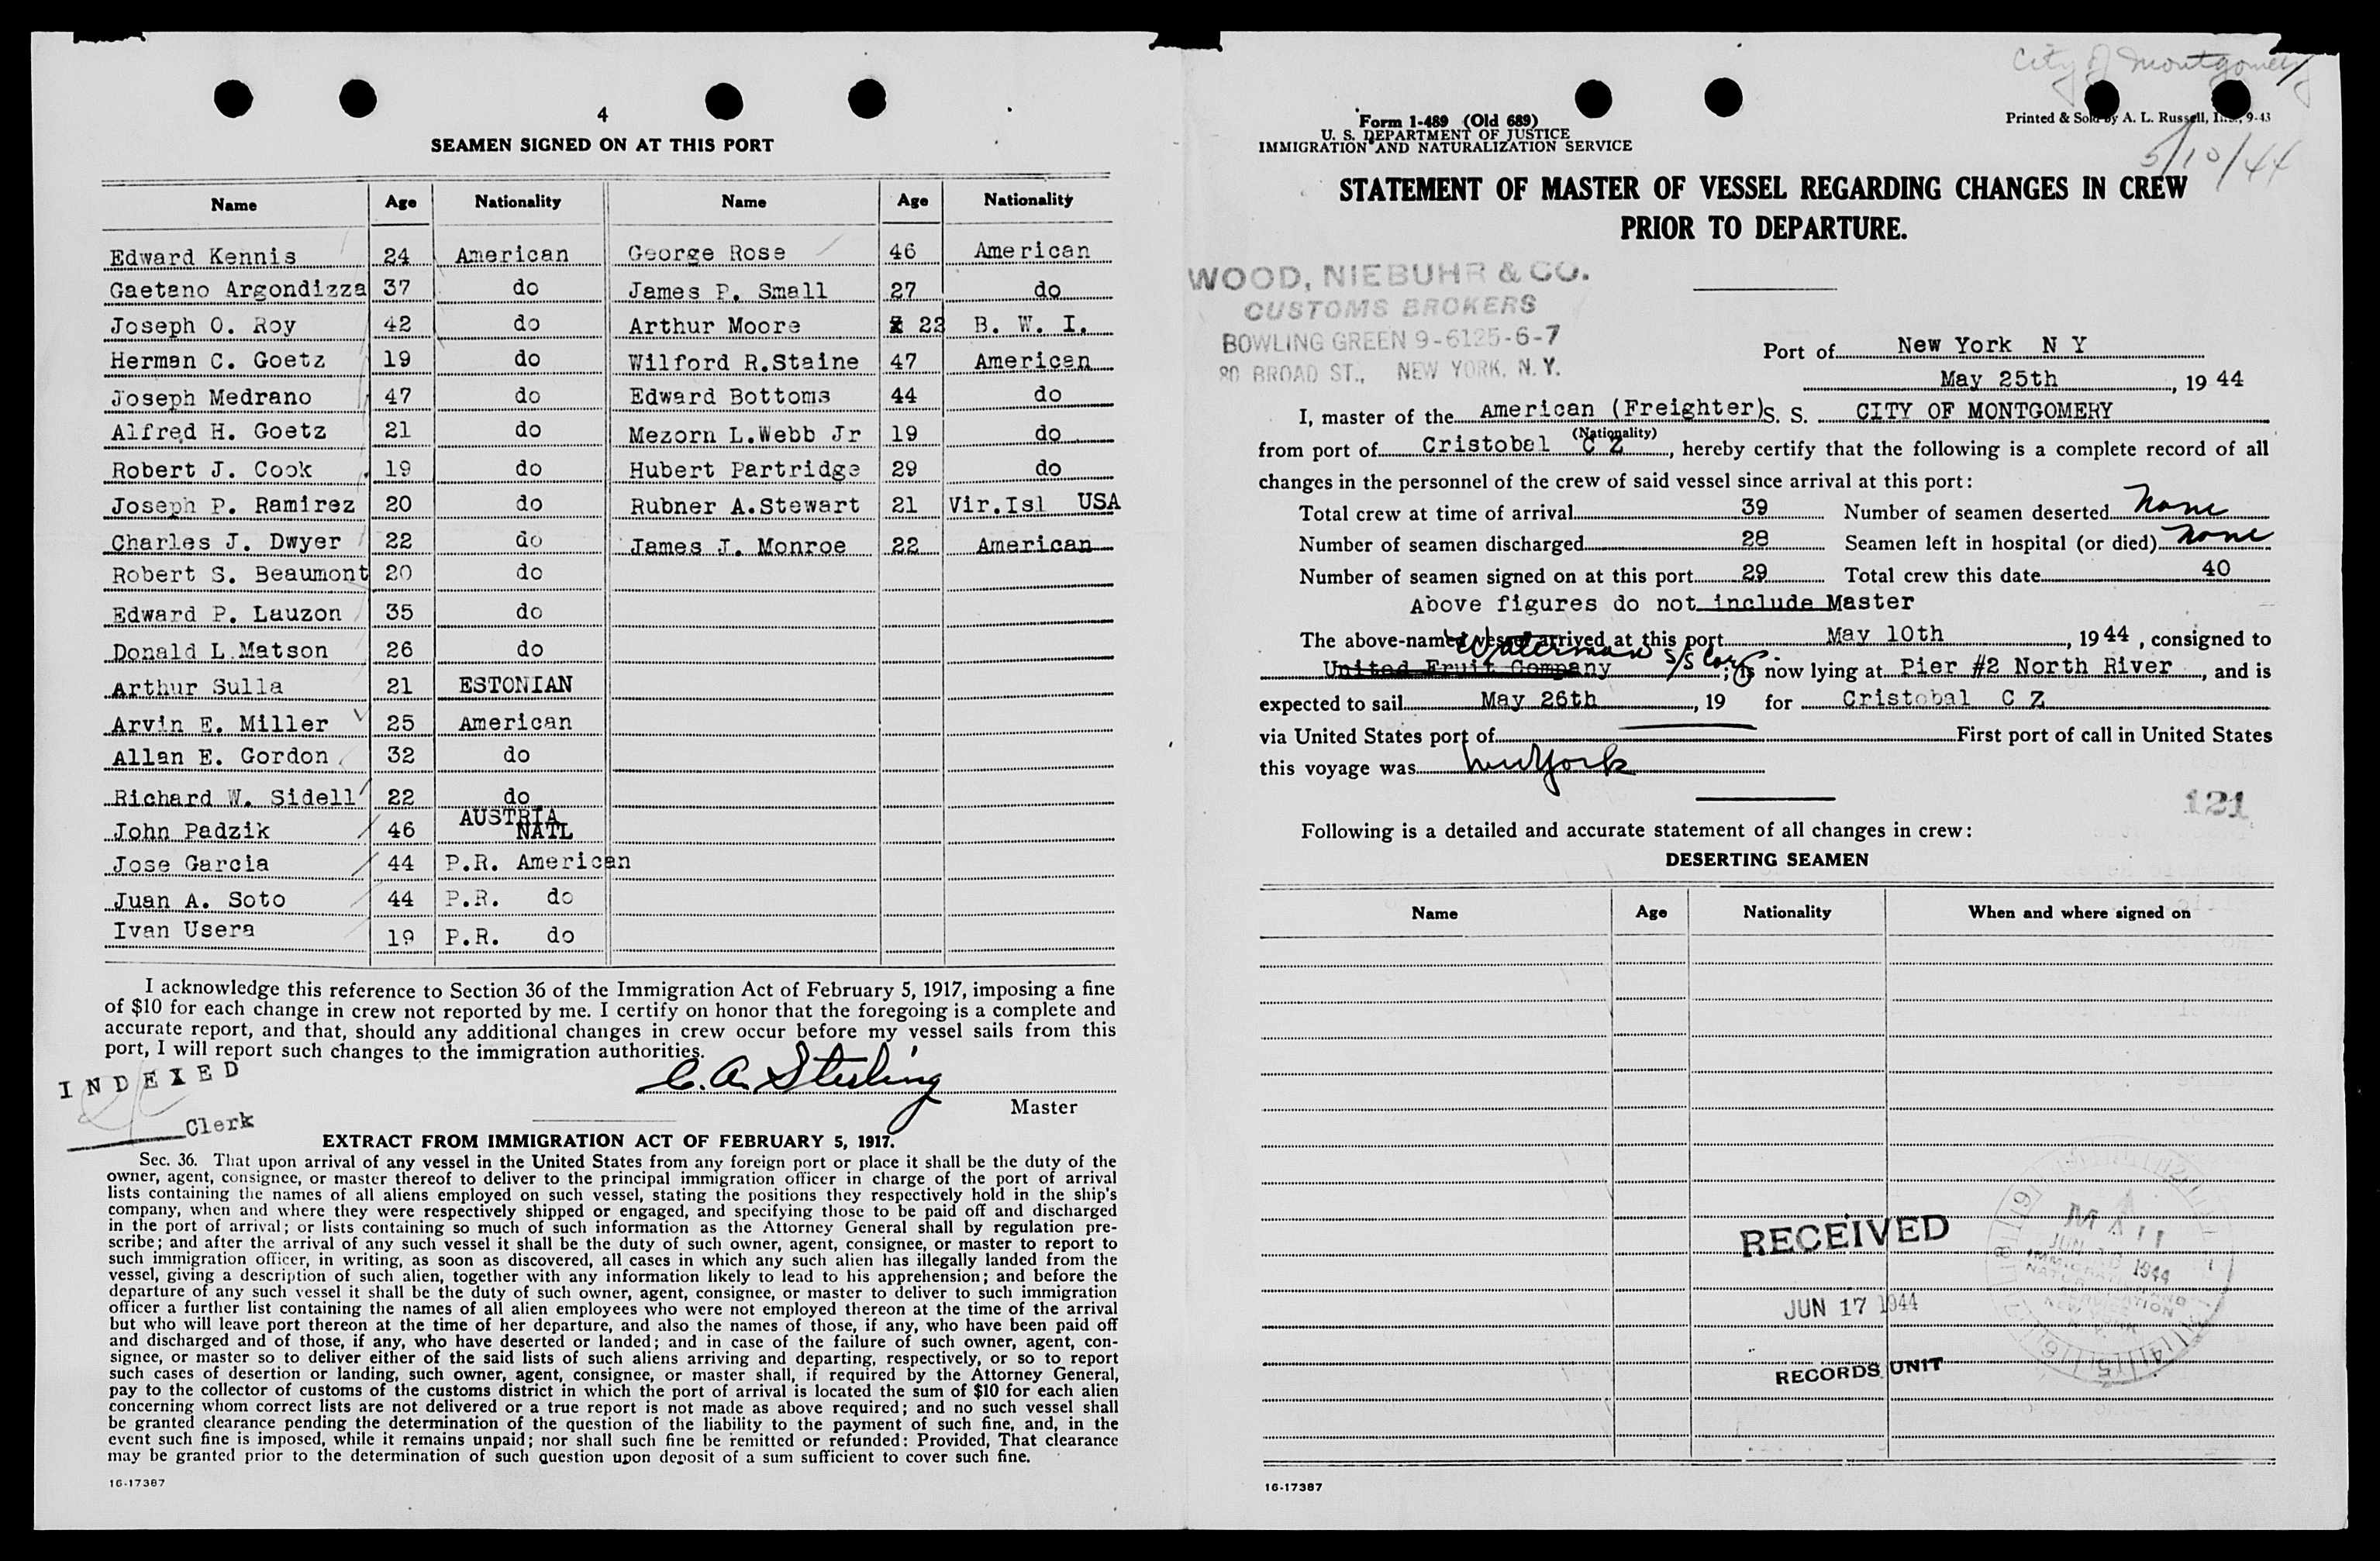 4
SEAMEN SIGNED ON AT THIS PORT
Name Age Nationality Name Age Nationality
Edward Kennis 24 American George Rose 46 American
Gaetano Argondizza 37 do James P. Small 27 do
Joseph O. Roy 42 do Arthur Moore 22 B. W. I.
Herman C. Goetz 19 do Wilford R.Staine 47 American
Joseph Medrano 47 do Edward Bottoms 44 do
Alfred H. Goetz 21 do Mezorn L.Webb Jr 19 do
Robert J. Cook 19 do Hubert Partridge 29 do
Joseph P. Ramirez 20 do Rubner A.Stewart 21 Vir.Isl USA
Charles J. Dwyer 22 do James J. Monroe 22 American
Robert S. Beaumont 20 do
Edward P. Lauzon 35 do
Donald L.Matson 26 do
Arthur Sulla 21 ESTONIAN
Arvin E. Miller 25 American
Allan E. Gordon 32 do
Richard W. Sidell 22 do
John Padzik 46 AUSTRIA NATL
Jose Garcia 44 P.R. American
Juan A. Soto 44 P.R. do
Ivan Usera 19 P.R. do
I acknowledge this reference to Section 36 of the Immigration Act of February 5, 1917, imposing a fine
of $10 for each change in crew not reported by me. I certify on honor that the foregoing is a complete and
accurate report, and that, should any additional changes in crew occur before my vessel sails from this
port, I will report such changes to the immigration authorities.
INDEXED
C. A. Sterling
Master
Clerk
EXTRACT FROM IMMIGRATION ACT OF FEBRUARY 5, 1917.
Sec. 36. That upon arrival of any vessel in the United States from any foreign port or place it shall be the duty of the
owner, agent, consignee, or master thereof to deliver to the principal immigration officer in charge of the port of arrival
lists containing the names of all aliens employed on such vessel, stating the positions they respectively hold in the ship's
company, when and where they were respectively shipped or engaged, and specifying those to be paid off and discharged
in the port of arrival; or lists containing so much of such information as the Attorney General shall by regulation pre-
scribe; and after the arrival of any such vessel it shall be the duty of such owner, agent, consignee, or master to report to
such immigration officer, in writing, as soon as discovered, all cases in which any such alien has illegally landed from the
vessel, giving a description of such alien, together with any information likely to lead to his apprehension; and before the
departure of any such vessel it shall be the duty of such owner, agent, consignee, or master to deliver to such immigration
officer a further list containing the names of all alien employees who were not employed thereon at the time of the arrival
but who will leave port thereon at the time of her departure, and also the names of those, if any, who have been paid off
and discharged and of those, if any, who have deserted or landed; and in case of the failure of such owner, agent, con-
signee, or master so to deliver either of the said lists of such aliens arriving and departing, respectively, or so to report
such cases of desertion or landing, such owner, agent, consignee, or master shall, if required by the Attorney General,
pay to the collector of customs of the customs district in which the port of arrival is located the sum of $10 for each alien
concerning whom correct lists are not delivered or a true report is not made as above required; and no such vessel shall
be granted clearance pending the determination of the question of the liability to the payment of such fine, and, in the
event such fine is imposed, while it remains unpaid; nor shall such fine be remitted or refunded: Provided, That clearance
may be granted prior to the determination of such question upon deposit of a sum sufficient to cover such fine.
16-17387
City of Montgomery
Form 1-489 (Old 689)
U. S. DEPARTMENT OF JUSTICE
IMMIGRATION AND NATURALIZATION SERVICE
Printed & Sold by A. L. Russell, 9-43
5/10/44
STATEMENT OF MASTER OF VESSEL REGARDING CHANGES IN CREW
PRIOR TO DEPARTURE.
WOOD, NIEBUHR & CO.
CUSTOMS BROKERS
BOWLING GREEN 9-6125-6-7
80 BROAD ST., NEW YORK, N. Y.
Port of New York N Y
May 25th, 19 44
I, master of the American (Freighter) S. S. CITY OF MONTGOMERY
(Nationality)
from port of Cristobal C Z, hereby certify that the following is a complete record of all
changes in the personnel of the crew of said vessel since arrival at this port:
Total crew at time of arrival 39 Number of seamen deserted None
Number of seamen discharged 28 Seamen left in hospital (or died) None
Number of seamen signed on at this port 29 Total crew this date 40
Above figures do not include Master
The above-named vessel arrived at this port May 10th, 19 44, consigned to
Waterman S/S Corp.
United Fruit Company; is now lying at Pier #2 North River, and is
expected to sail May 26th, 19 for Cristobal C Z
via United States port of First port of call in United States
this voyage was New York
121
Following is a detailed and accurate statement of all changes in crew:
DESERTING SEAMEN
Name Age Nationality When and where signed on
RECEIVED
JUN 17 1944
RECORDS UNIT
MAIL
JUN 1944
IMMIGRATION AND
NATURALIZATION
SERVICE
NEW YORK
N. Y.
16-17387